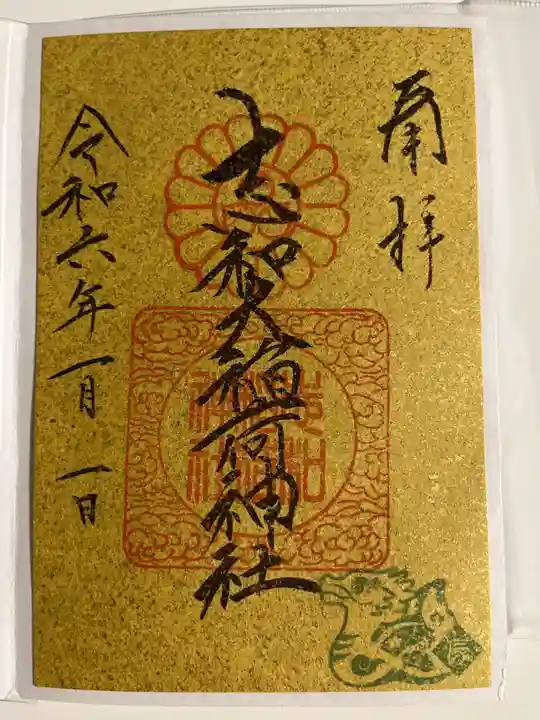 奉拝
志和古稲荷神社
令和六年一月一日